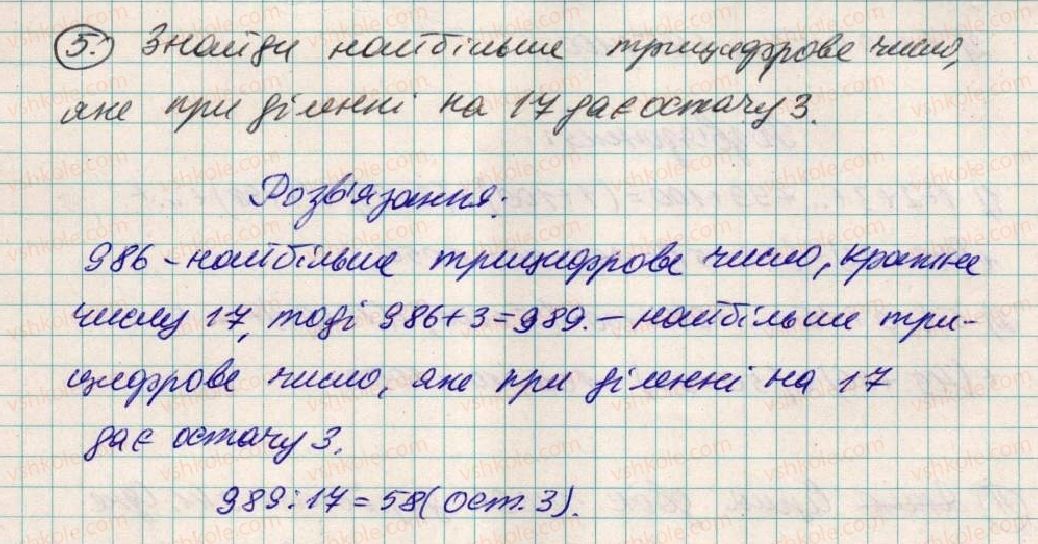 5. Знайди найбільше трицифрове число,
яке при діленні на 17 дає остачу 3.
Розв'язання:
986 – найбільше трицифрове число, кратне
числу 17, тоді 986+3=989. – найбільше три-
цифрове число, яке при діленні на 17
дає остачу 3.
989:17=58 (ост. 3).